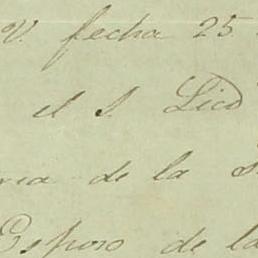 V. fecha 25
el S. Licdo
de la
Esposo de la